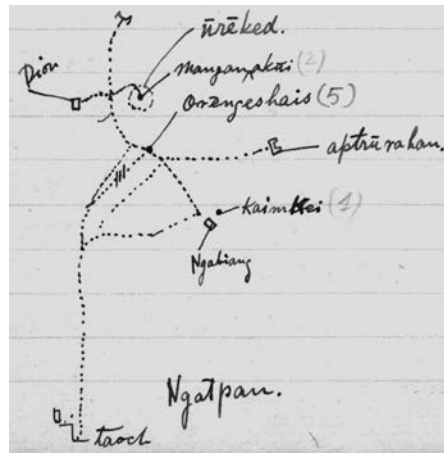 ūrēked.
Dion
mangamakai (2)
Orangeshais (5)
aptrūrahan.
Kaimkei (1)
Ngabiang
Ngatpan.
taoch